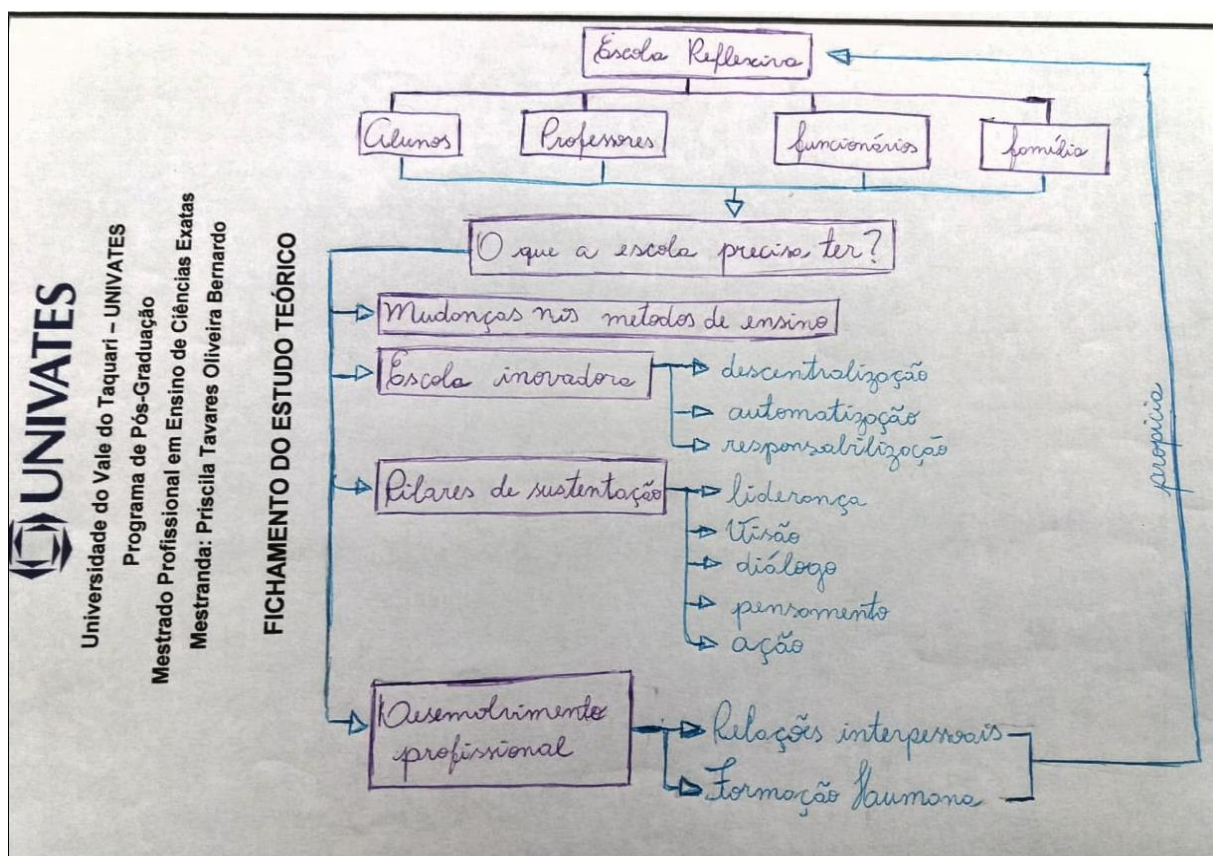 UNIVATES
Universidade do Vale do Taquari – UNIVATES
Programa de Pós-Graduação
Mestrado Profissional em Ensino de Ciências Exatas
Mestranda: Priscila Tavares Oliveira Bernardo
FICHAMENTO DO ESTUDO TEÓRICO
Escola Reflexiva
Alunos
Professores
funcionários
família
O que a escola precisa ter?
Mudanças nos metodos de ensino
Escola inovadora
descentralização
automatização
responsabilização
Pilares de sustentação
liderança
Visão
diálogo
pensamento
ação
Desemolvimento
profissional
Relações interpessoais
Formação Haumana
propicia